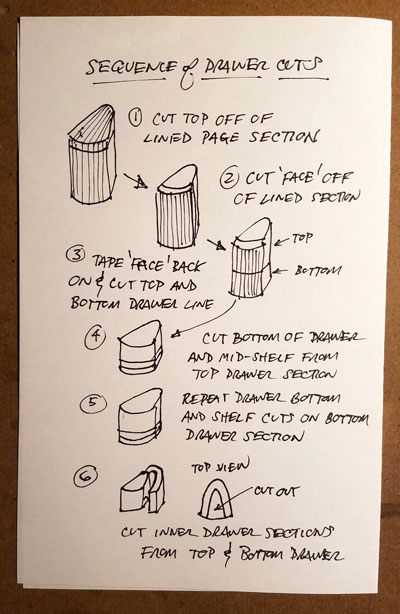 SEQUENCE of DRAWER CUTS
① CUT TOP OFF OF
LINED PAGE SECTION
② CUT 'FACE' OFF
OF LINED SECTION
③ TAPE 'FACE' BACK
ON & CUT TOP AND
BOTTOM DRAWER LINE
TOP
BOTTOM
④ CUT BOTTOM OF DRAWER
AND MID-SHELF FROM
TOP DRAWER SECTION
⑤ REPEAT DRAWER BOTTOM
AND SHELF CUTS ON BOTTOM
DRAWER SECTION
⑥ TOP VIEW
CUT OUT
CUT INNER DRAWER SECTIONS
FROM TOP & BOTTOM DRAWER